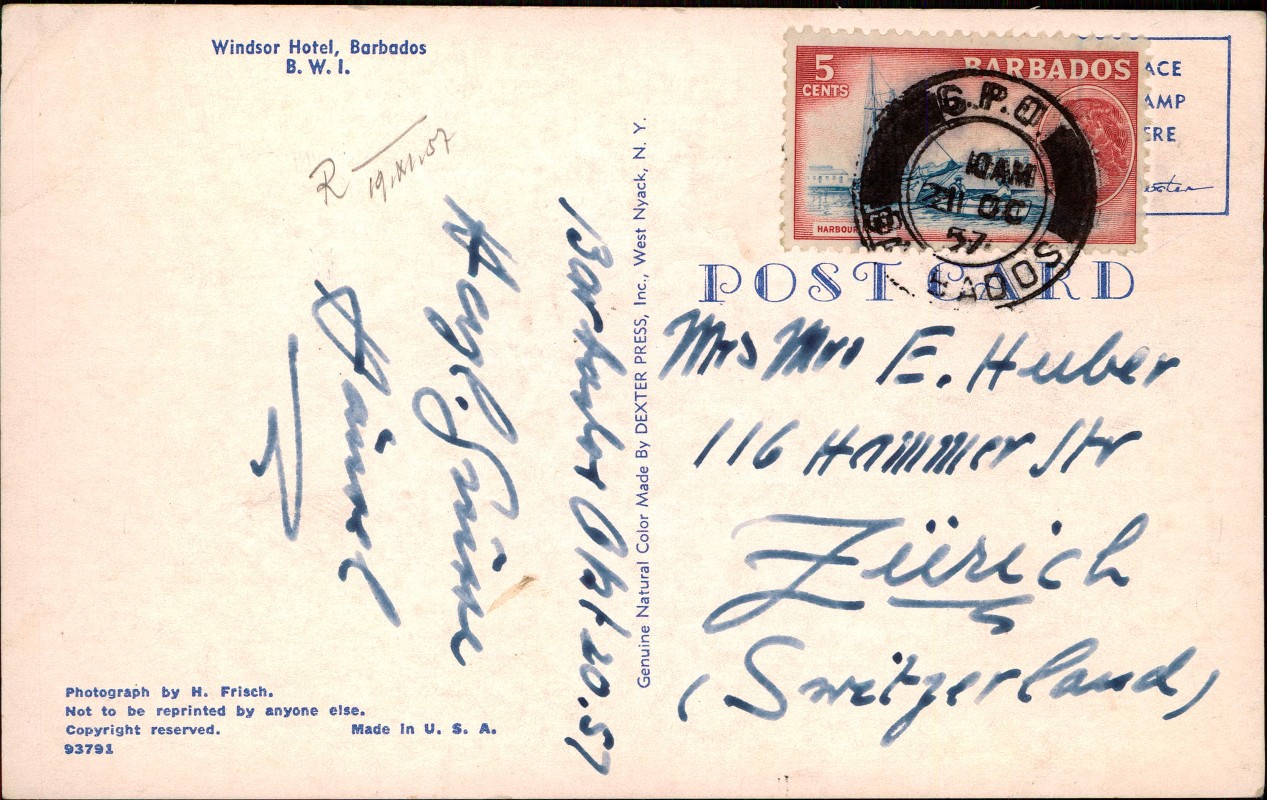 Windsor Hotel, Barbados
B. W. I.
R 19.XII.57
Barbados Okt 20.57
Herzl. Grüsse
Photograph by H. Frisch.
Not to be reprinted by anyone else.
Copyright reserved. Made in U. S. A.
93791
Genuine Natural Color Made By DEXTER PRESS, Inc., West Nyack, N. Y.
5 CENTS
BARBADOS
HARBOUR
G.P.O.
10AM
OC
57
BADOS
ACE
AMP
ERE
POST CARD
Mrs Mrs E. Huber
116 Hammer Str
Zürich
(Switzerland)